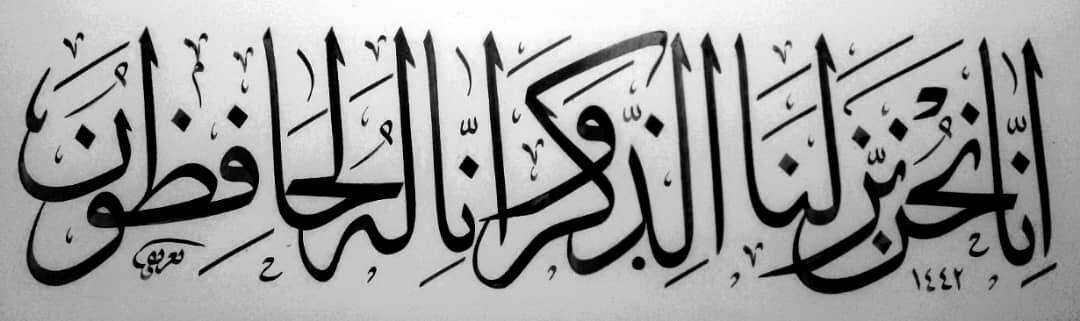 اِنَّا نَحْنُ نَزَّلْنَا الذِّكْرَ وَاِنَّا لَهُ لَحَافِظُونَ
١٤٤٢